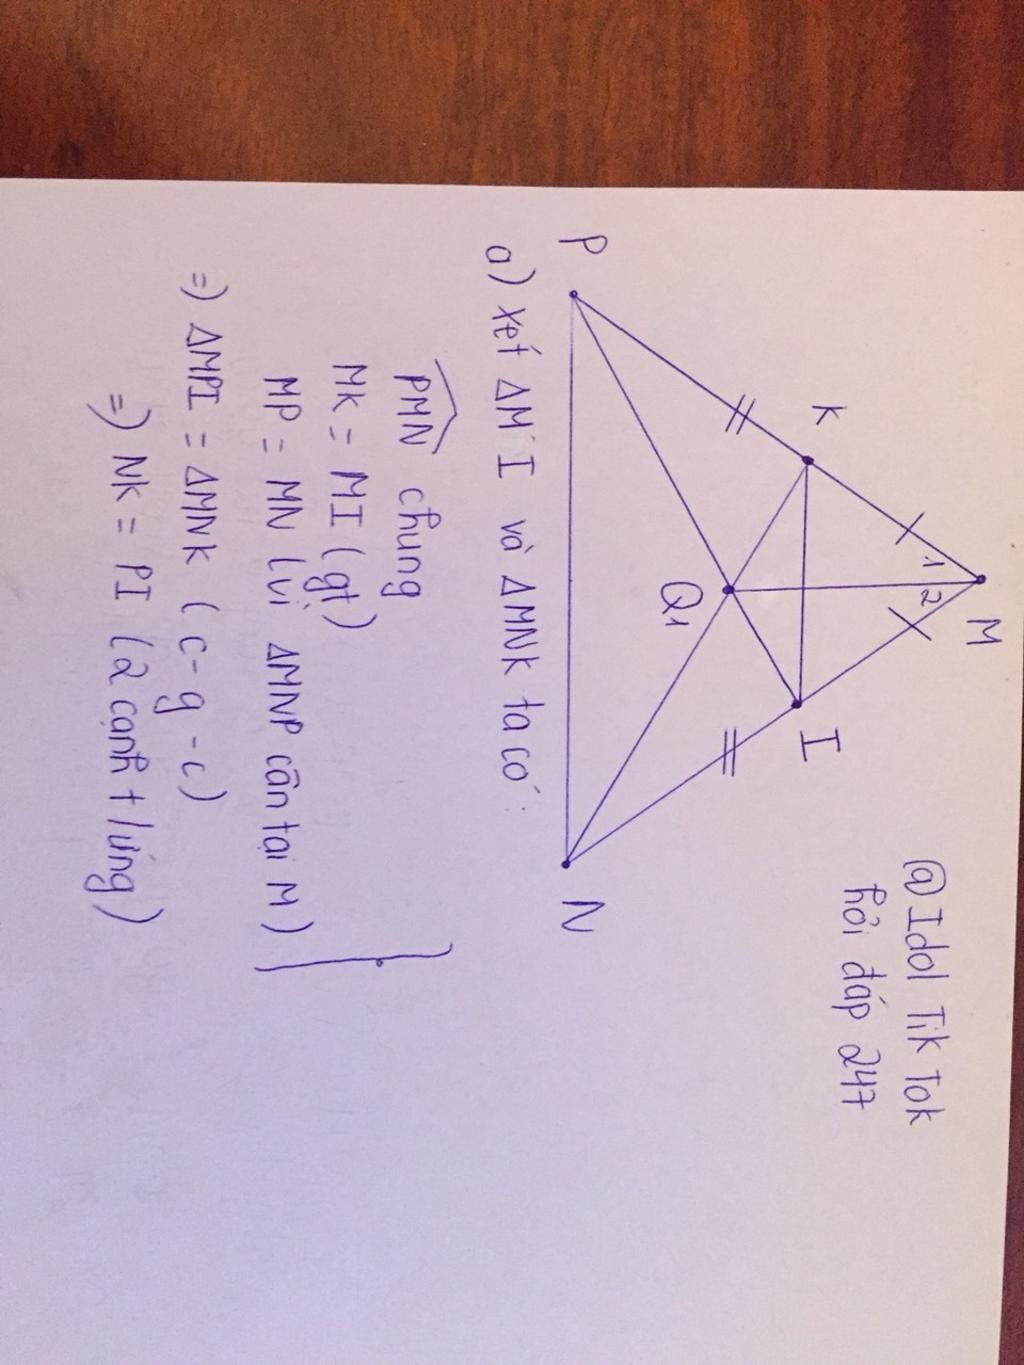 @Idol Tik Tok
hỏi đáp 247
M
1 2
K
I
Q1
P
N
a) Xét ΔM I và ΔMNK ta có:
PMN chung
MK = MI (gt)
MP = MN (vì ΔMNP cân tại M)
=) ΔMPI = ΔMNK (c-g-c)
=) NK = PI (2 cạnh t/ứng)